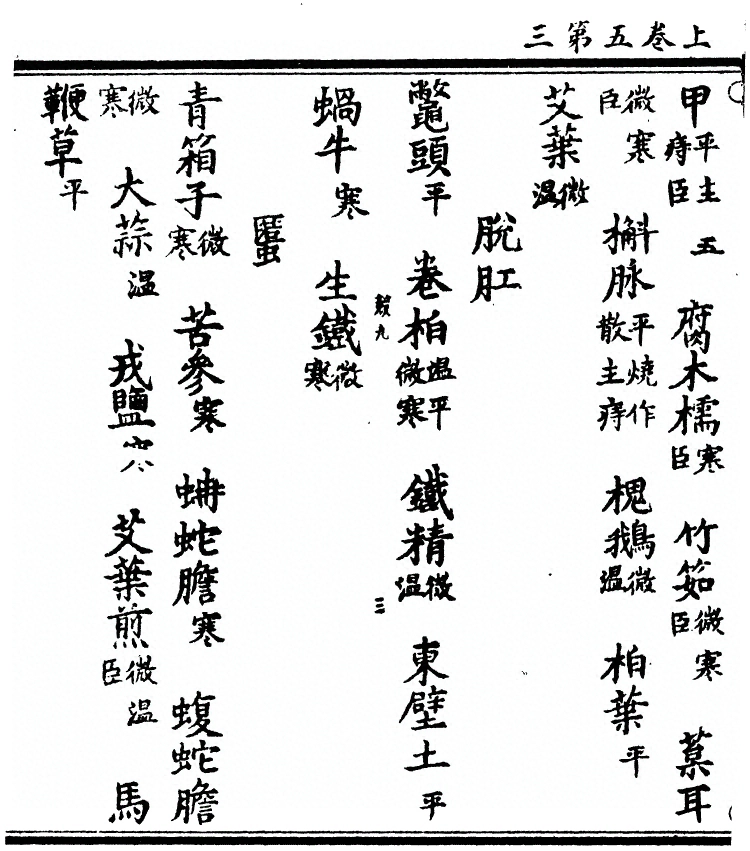 上卷五第三
甲平主五痔臣 腐木檽寒臣 竹筎微寒臣 葈耳
微寒臣 槲脉平燒作散主痔 槐鵝微温 柏葉平
艾葉微温
脫肛
鼈頭平 卷柏温平微寒 鐵精微温 東壁土平
九 三
蝸牛寒 生鐵微寒
䘌
青箱子微寒 苦參寒 蚺蛇膽寒 蝮蛇膽
微寒 大蒜温 戎鹽寒 艾葉煎微温臣 馬
鞭草平